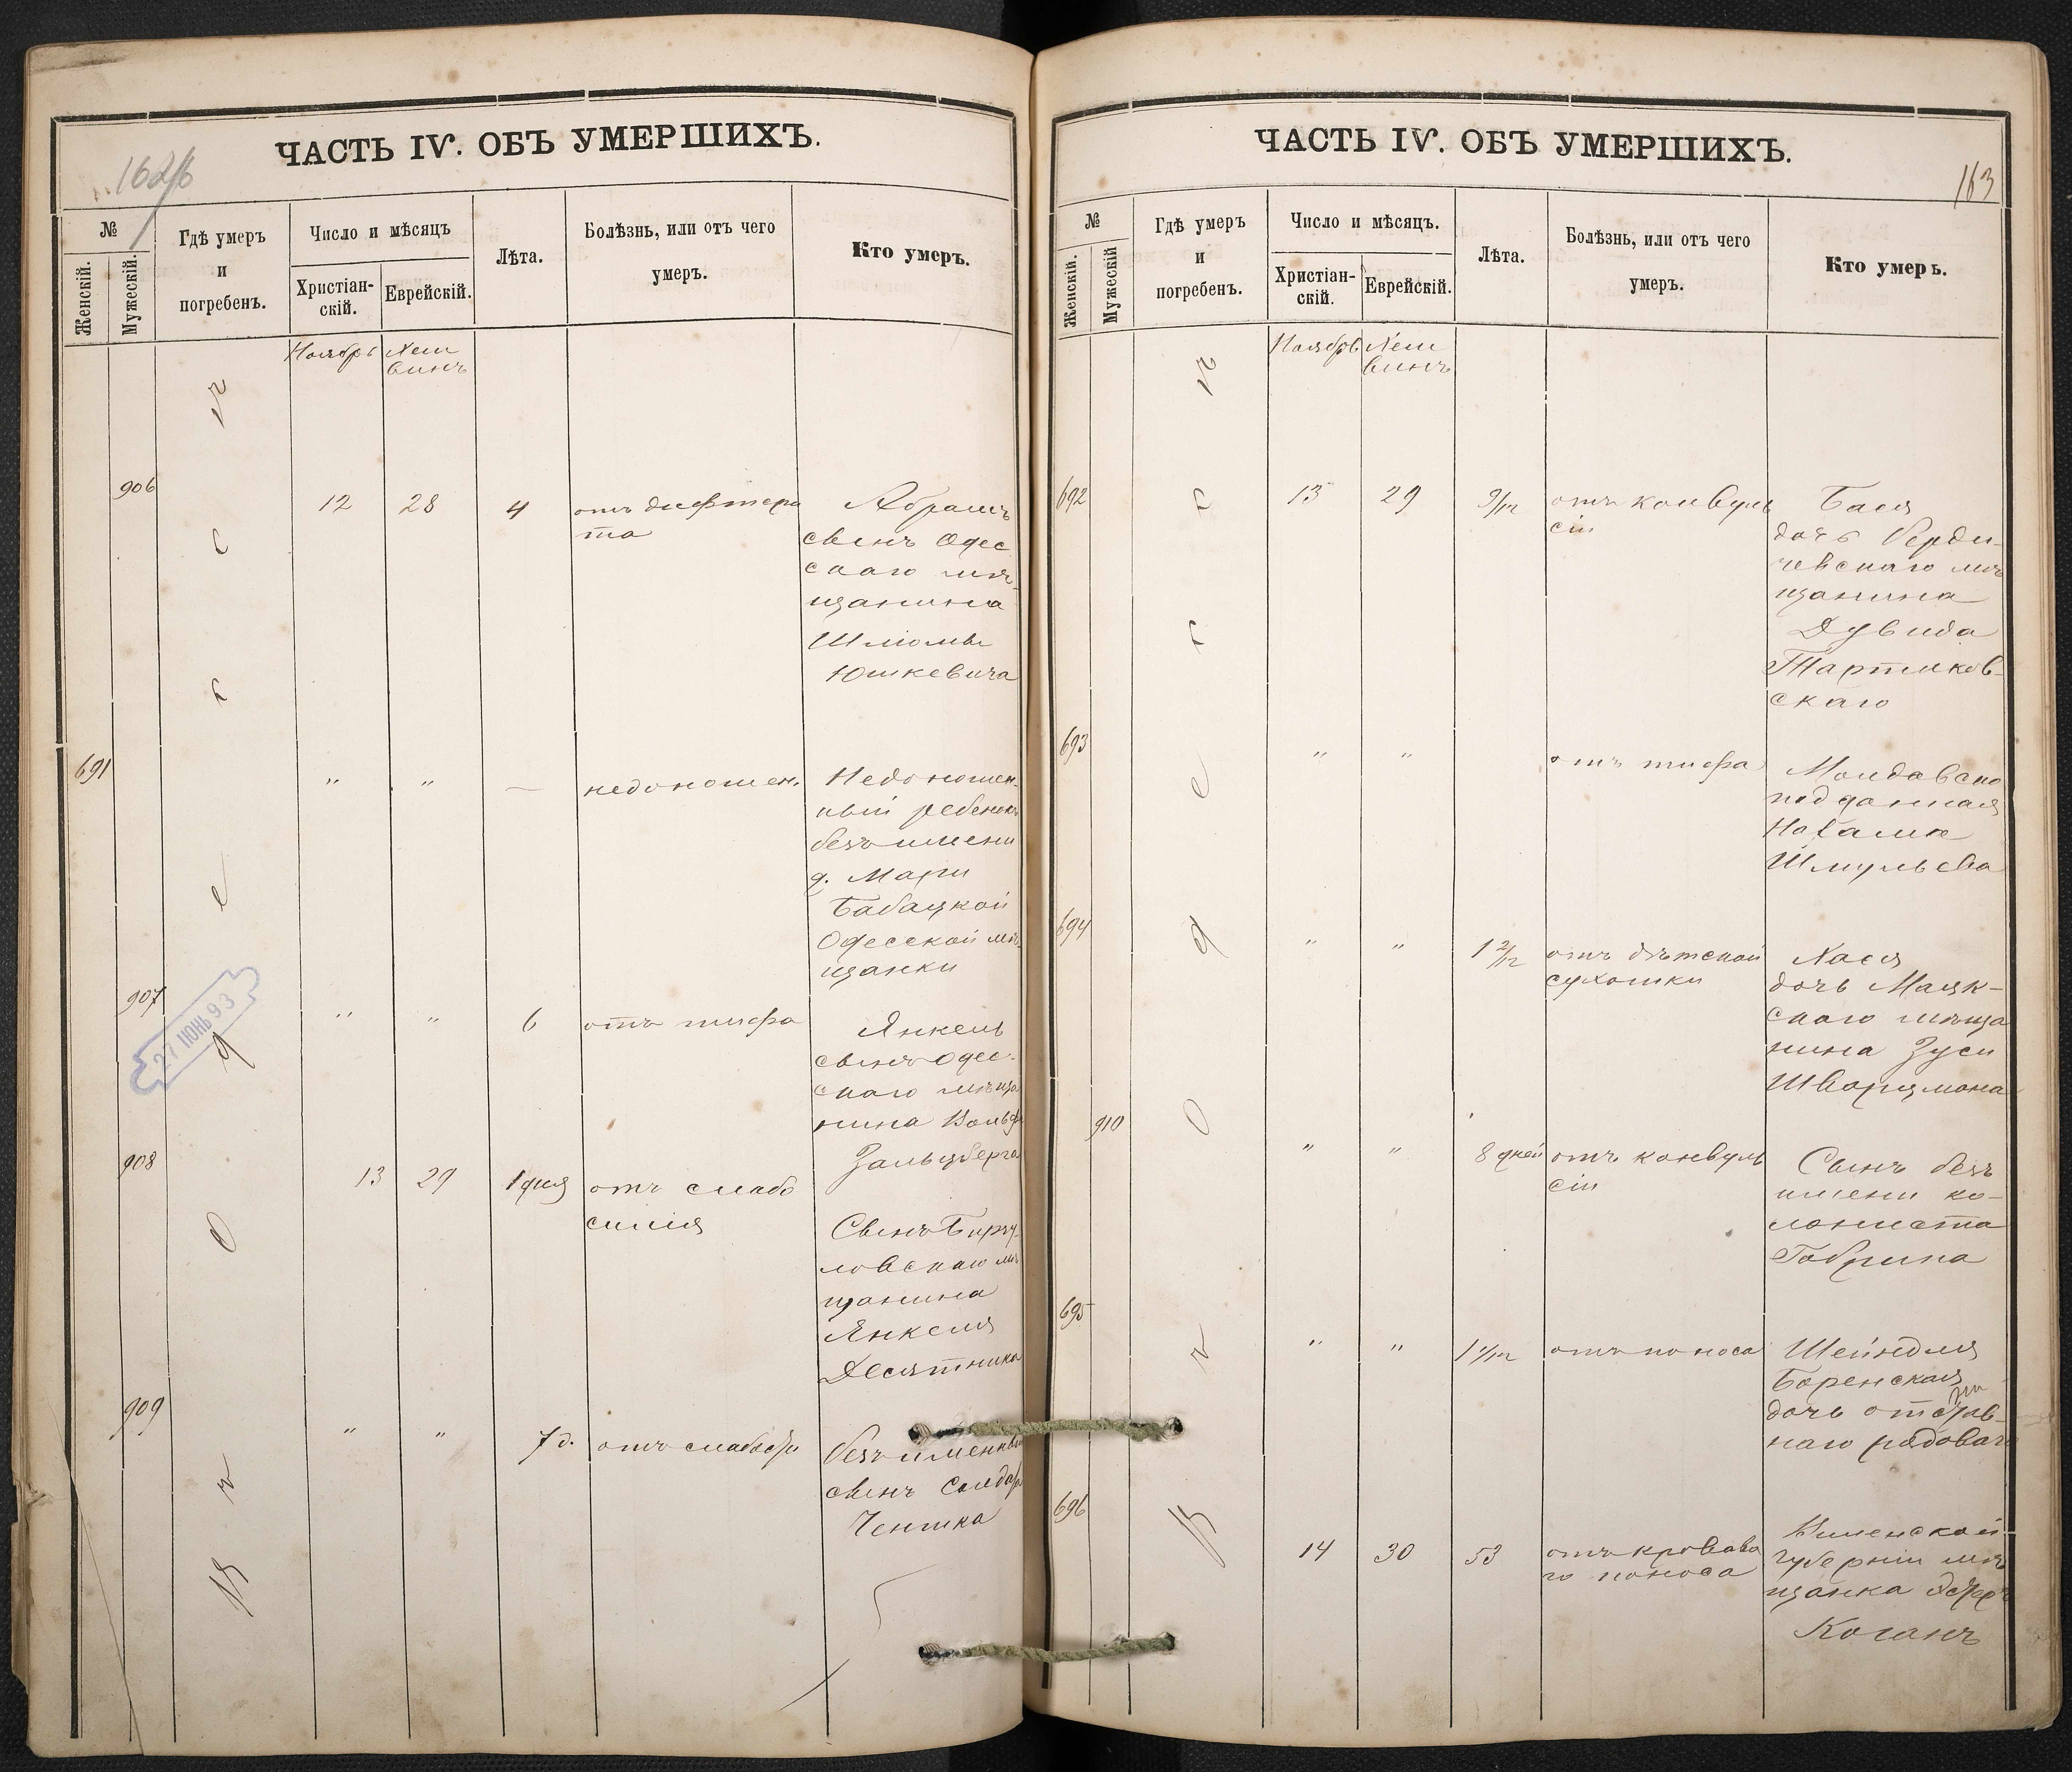 ЧАСТЬ IV. ОБЪ УМЕРШИХЪ.
162/б
№
Женскій.
Мужескій.
Гдѣ умеръ
и
погребенъ.
Число и мѣсяцъ
Христіан-
скій.
Еврейскій.
Лѣта.
Болѣзнь, или отъ чего
умеръ.
Кто умеръ.
Ноябрь
Хеш
винъ
въ
Одессѣ
906
12
28
4
отъ дифтери
та
Абрамъ
сынъ Одес
скаго мѣ-
щанина
Шлиомы
Юшкевича
691
"
"
—
недоношен.
Недоношен-
ный ребенокъ
безъ имени
д. Мари
Бабацкой
Одесской мѣ-
щанки
907
"
"
6
отъ тифа
Янкель
сынъ Одес-
скаго мѣща
нина Вольфа
Зальцберга
27 ІЮНЬ 93
908
13
29
1 дня
отъ слабо
силія
Сынъ Бирзу-
ловскаго мѣ
щанина
Янкеля
Десятника
909
"
"
7 д.
отъ слабости
безъименный
сынъ Солдата
Ченшка
ЧАСТЬ IV. ОБЪ УМЕРШИХЪ.
163
№
Женскій.
Мужескій
Гдѣ умеръ
и
погребенъ.
Число и мѣсяцъ.
Христіан-
скій.
Еврейскій.
Лѣта.
Болѣзнь, или отъ чего
умеръ.
Кто умеръ.
Ноябрь
Хеш
винъ
въ
Одессѣ
692
13
29
9/12
отъ конвуль
сіи
Бася
дочь Берди-
чевскаго мѣ
щанина
Дувида
Тартаков-
скаго
693
"
"
отъ тифа
Молдавско
подданная
Шмульева
694
"
"
1 2/12
отъ дѣтской
сухотки
Хася
дочь Маяк-
скаго мѣща
нина Зуси
Шварцмана
910
"
"
8 дней
отъ конвуль
сіи
Сынъ безъ
имени ко-
лониста
Габрина
695
"
"
отъ поноса
Шейндля
Боренская
дочь отстав-
наго рядоваго
696
14
30
53
отъ кровава
го поноса
Виленской
губерніи мѣ
щанка Эстеръ
Коганъ